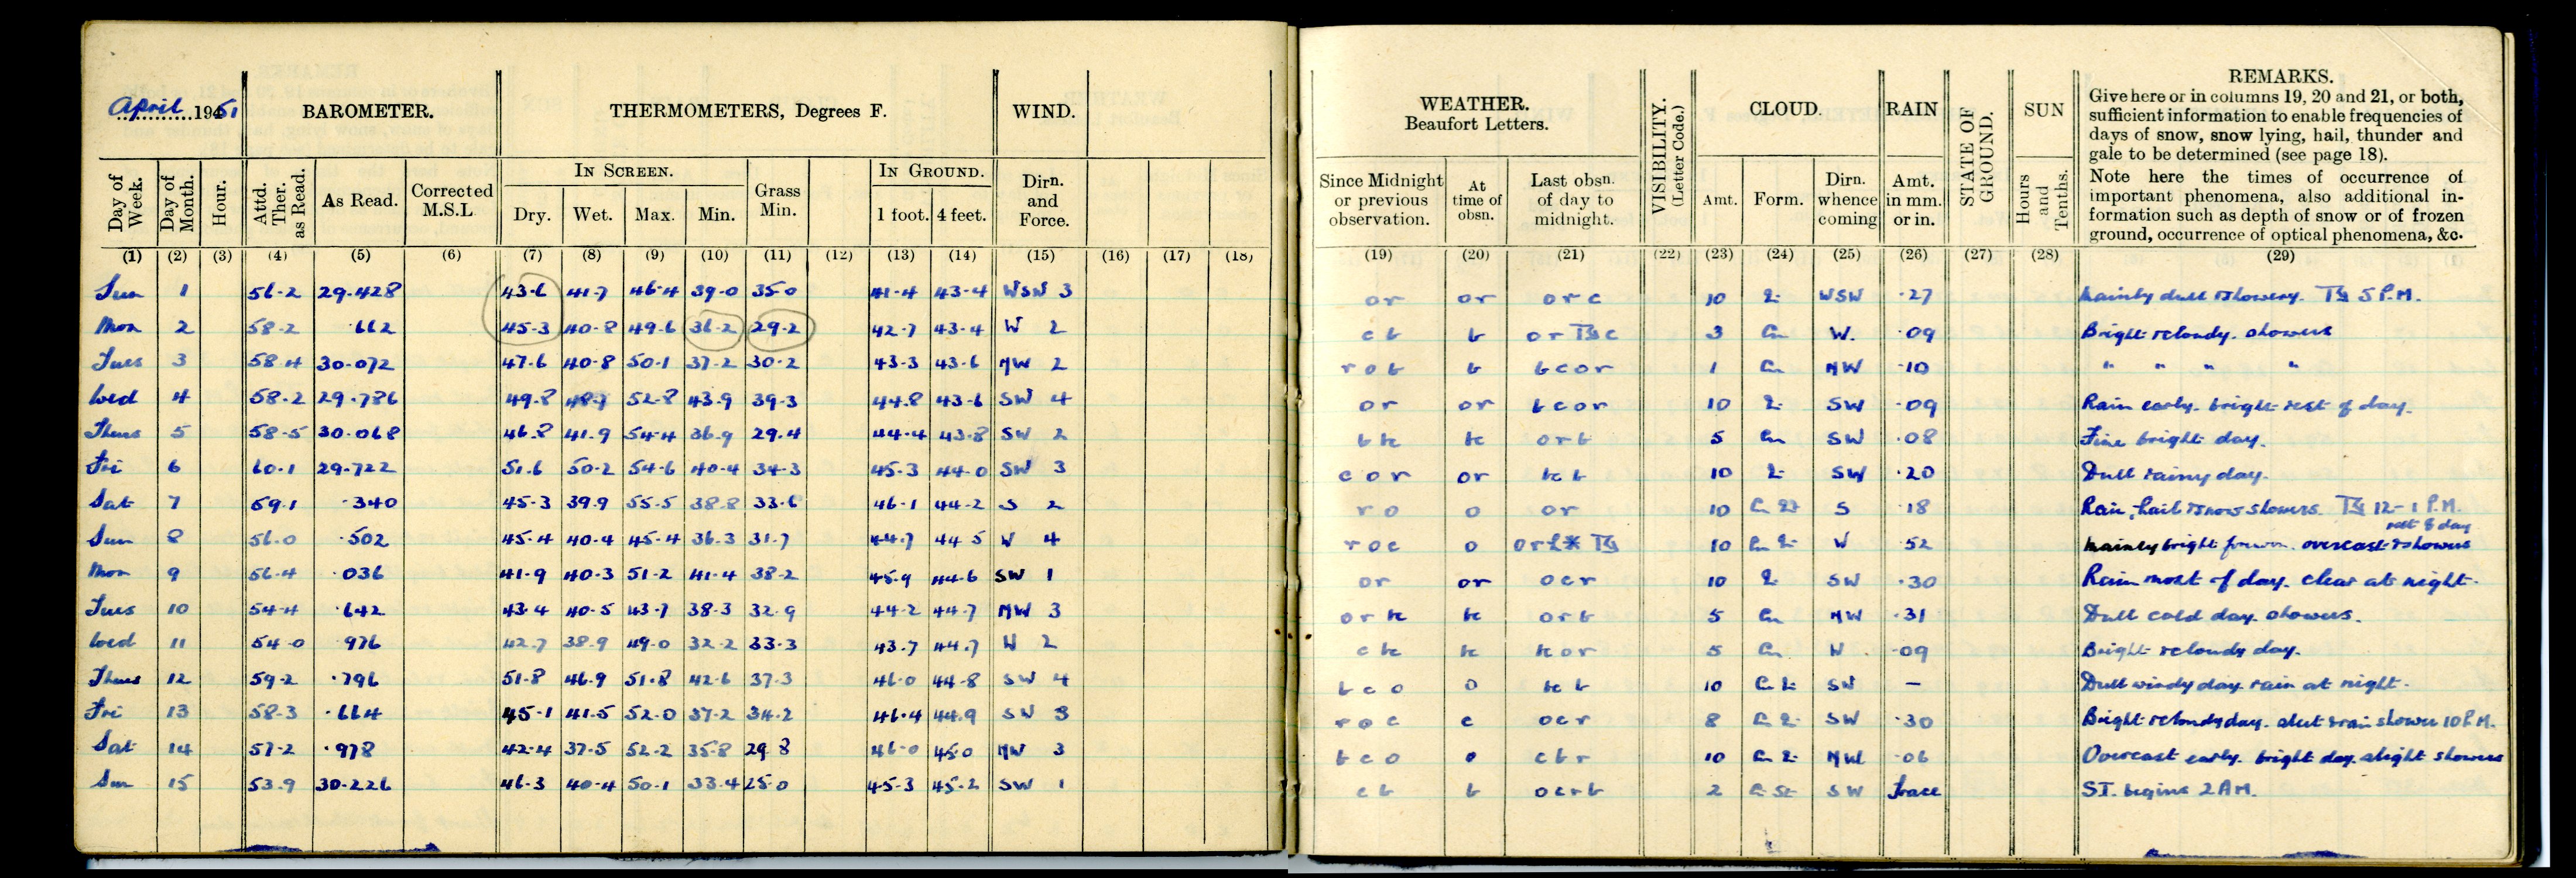 April 1951
BAROMETER. THERMOMETERS, Degrees F. WIND.
Day of Week. Day of Month. Hour. Attd. Ther. as Read. As Read. Corrected M.S.L IN SCREEN. Dry. Wet. Max. Min. Grass Min. IN GROUND. 1 foot. 4 feet. Dirn. and Force.
(1) (2) (3) (4) (5) (6) (7) (8) (9) (10) (11) (12) (13) (14) (15) (16) (17) (18)
Sun 1 56.2 29.428 43.6 41.7 46.4 39.0 35.0 41.4 43.4 WSW 3
Mon 2 58.2 .662 45.3 40.8 49.6 36.2 29.2 42.7 43.4 W 2
Tues 3 58.4 30.072 47.6 40.8 50.1 37.2 30.2 43.3 43.6 NW 2
Wed 4 58.2 29.786 49.8 48.7 52.8 43.9 39.3 44.8 43.6 SW 4
Thurs 5 58.5 30.068 46.8 41.9 54.4 36.9 29.4 44.4 43.8 SW 2
Fri 6 60.1 29.722 51.6 50.2 54.6 40.4 34.3 45.3 44.0 SW 3
Sat 7 59.1 .340 45.3 39.9 55.5 38.8 33.6 46.1 44.2 S 2
Sun 8 56.0 .502 45.4 40.4 45.4 36.3 31.7 44.7 44.5 W 4
Mon 9 56.4 .036 41.9 40.3 51.2 41.4 38.2 45.9 44.6 SW 1
Tues 10 54.4 .642 43.4 40.5 43.7 38.3 32.9 44.2 44.7 NW 3
Wed 11 54.0 976 42.7 38.9 49.0 32.2 33.3 43.7 44.7 W 2
Thurs 12 59.2 .796 51.8 46.9 51.8 42.6 37.3 46.0 44.8 SW 4
Fri 13 58.3 .664 45.1 41.5 52.0 37.2 34.2 46.4 44.9 SW 3
Sat 14 57.2 .978 42.4 37.5 52.2 35.8 29.8 46.0 45.0 NW 3
Sun 15 53.9 30.226 46.3 40.4 50.1 33.4 25.0 45.3 45.2 SW 1
WEATHER. Beaufort Letters. VISIBILITY. (Letter Code.) CLOUD. RAIN STATE OF GROUND. SUN REMARKS.
Give here or in columns 19, 20 and 21, or both,
sufficient information to enable frequencies of
days of snow, snow lying, hail, thunder and
gale to be determined (see page 18).
Note here the times of occurrence of
important phenomena, also additional in-
formation such as depth of snow or of frozen
ground, occurrence of optical phenomena, &c.
Since Midnight or previous observation. At time of obsn. Last obsn. of day to midnight. Amt. Form. Dirn. whence coming Amt. in mm. or in. Hours and Tenths.
(19) (20) (21) (22) (23) (24) (25) (26) (27) (28) (29)
or or orc 10 WSW .27 Mainly dull & showery. 5 P.M.
cb b or c 3 Cu W. .09 Bright & cloudy. showers
rob b bcor 1 Cu NW .10 " " " "
or or bcor 10 SW .09 Rain early. bright rest of day.
bc orb 5 Cu SW .08 Fine bright day.
cor or 10 SW .20 Dull rainy day.
ro o or 10 Cu S .18 Rain, hail & snow showers. 12-1 P.M.
roc o 10 W .52 Mainly bright overcast & showers rest of day
or or ocr 10 SW .30 Rain most of day. clear at night.
orb 5 Cu NW .31 Dull cold day. showers.
5 Cu W .09 Bright & cloudy day.
bco o 10 SW - Dull windy day. rain at night.
roc c ocr 8 SW .30 Bright & cloudy day. sleet & rain shower 10 P.M.
bco o cbr 10 NW .06 Overcast early. bright day. slight showers
cb b ocrb 2 SW trace S.T. begins 2 A.M.